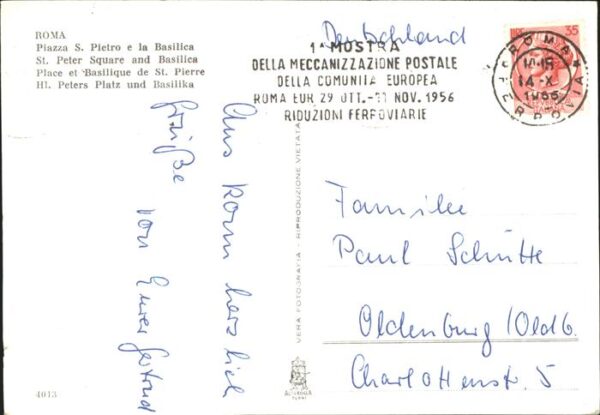 ROMA
Piazza S. Pietro e la Basilica
St. Peter Square and Basilica
Place et Basilique de St. Pierre
Hl. Peters Platz und Basilika
Deutschland
1ª MOSTRA
DELLA MECCANIZZAZIONE POSTALE
DELLA COMUNITÀ EUROPEA
ROMA EUR 29 OTT.-11 NOV. 1966
RIDUZIONI FERROVIARIE
35
ROMA
14-X
1966
FERROVIA
Aus Rom herzlich
Grüße
von Eurer Gertrud
VERA FOTOGRAFIA - RIPRODUZIONE VIETATA
Familie
Paul Schütte
Oldenburg /Oldb.
Charlottenstr. 5
4013